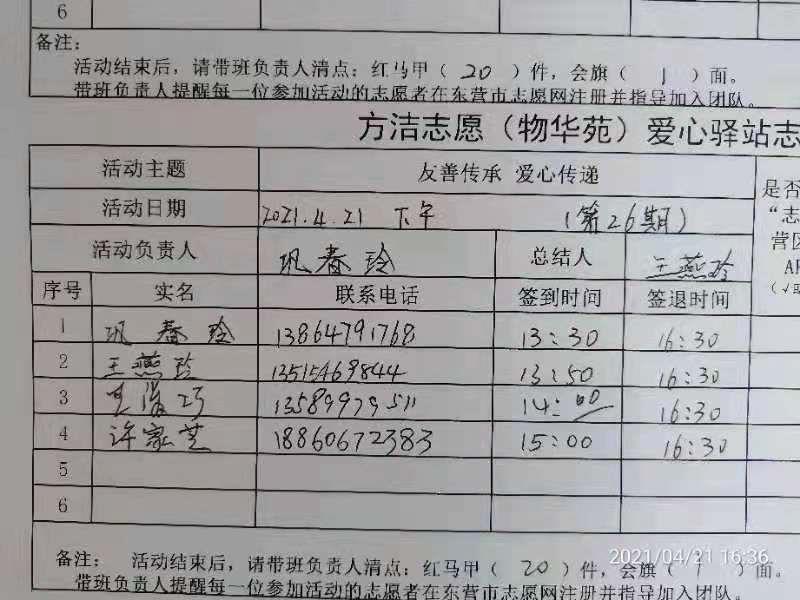 6
备注：
活动结束后，请带班负责人清点：红马甲（ 20 ）件，会旗（ 1 ）面。
带班负责人提醒每一位参加活动的志愿者在东营市志愿网注册并指导加入团队。
方洁志愿（物华苑）爱心驿站志
活动主题 友善传承 爱心传递 是否
活动日期 2021.4.21 下午 （第26期） “志
活动负责人 巩春玲 总结人 王燕玲 营区
序号 实名 联系电话 签到时间 签退时间 （√
1 巩春玲 13864791768 13:30 16:30
2 王燕玲 13515469844 13:50 16:30
3 13589979511 14:00 16:30
4 许家芝 18860672383 15:00 16:30
5
6
2021/04/21 16:36
备注： 活动结束后，请带班负责人清点：红马甲（ 20 ）件，会旗（ 1 ）面。
带班负责人提醒每一位参加活动的志愿者在东营市志愿网注册并指导加入团队。